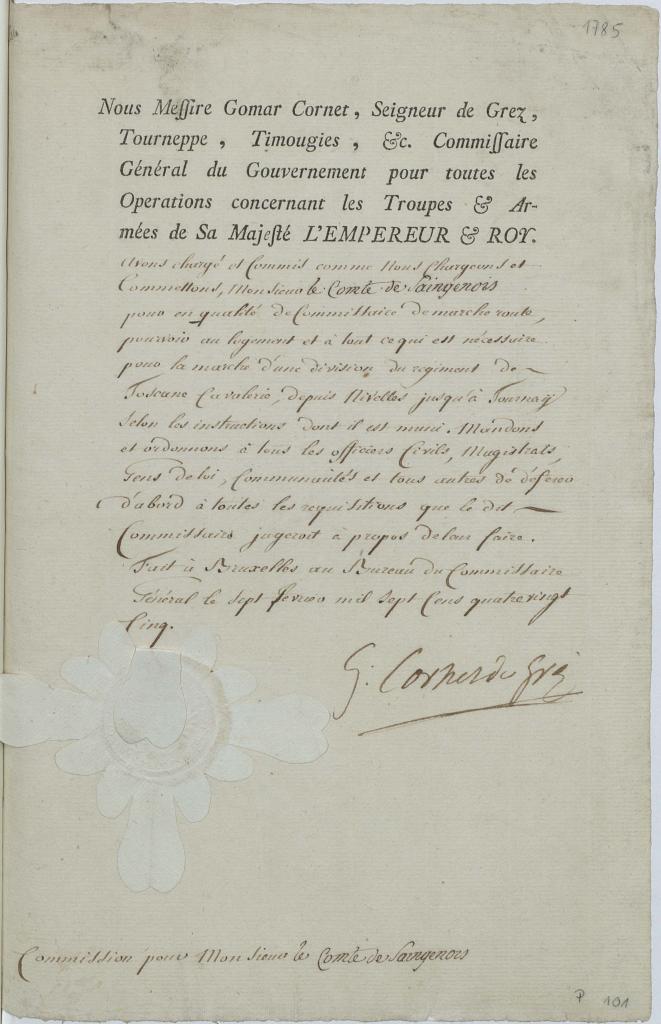 1785
Nous Messire Gomar Cornet, Seigneur de Grez,
Tourneppe, Timougies, &c. Commissaire
Général du Gouvernement pour toutes les
Operations concernant les Troupes & Ar-
mées de Sa Majesté L'EMPEREUR & ROY.
Avons chargé et Commis comme Nous Chargeons et
Commettons, Monsieur le Comte de Saingenois
pour en qualité de Committaire de marche route,
pourvoir au logement et à tout ce qui est nécessaire
pour la marche d'une division du regiment de
Toscane Cavalerie, depuis Nivelles jusqu'à Tournaÿ
selon les instructions dont il est muni. Mandons
et ordonnons à tous les officiers Civils, Magistrats,
Gens de loi, Communautés et tous autres de déferer
d'abord à toutes les requisitions que le dit
Commissaire jugeroit à propos de leur faire.
Fait à Bruxelles au Bureau du Commissaire
Général le sept fevrer mil sept Cens quatre vingt
Cinq.
G: Cornet de Grez
Commission pour Monsieur le Comte de Saingenois
P 101